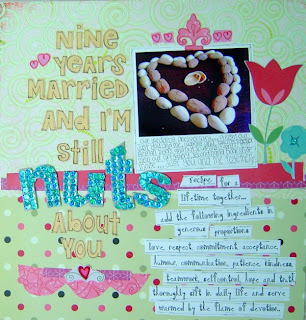 NINE
YEARS
MARRIED
AND I'M
STILL
nuts
ABOUT
YOU
recipe for a
lifetime together...
add the following ingredients in
generous proportions
love respect, commitment acceptance,
humour, communication, patience, kindness,
teamwork, selfcontrol, hope and truth
thoroughly sift in daily life and serve
warmed by the flame of devotion.